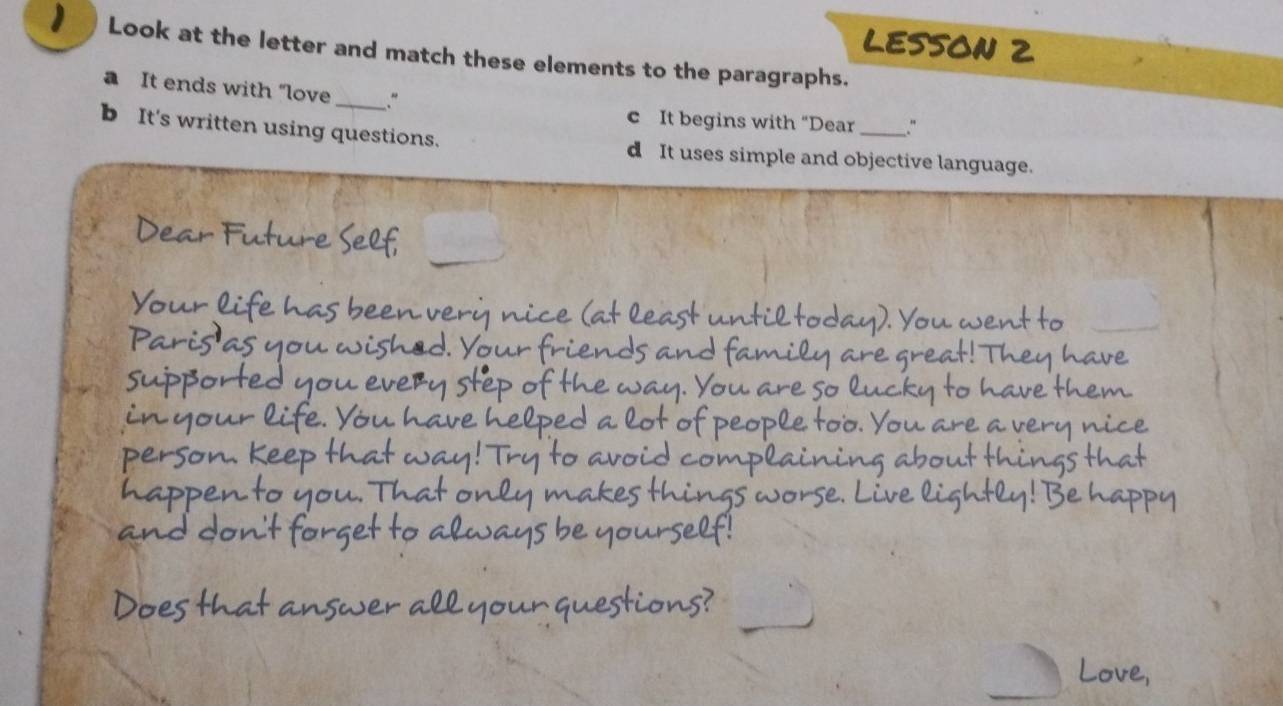 1 Look at the letter and match these elements to the paragraphs.
LESSON 2
a It ends with "love_____."
b It's written using questions.
c It begins with "Dear _____."
d It uses simple and objective language.
Dear Future Self,
Your life has been very nice (at least until today). You went to
Paris as you wished. Your friends and family are great! They have
supported you every step of the way. You are so lucky to have them
in your life. You have helped a lot of people too. You are a very nice
person. Keep that way! Try to avoid complaining about things that
happen to you. That only makes things worse. Live lightly! Be happy
and don't forget to always be yourself!
Does that answer all your questions?
Love,